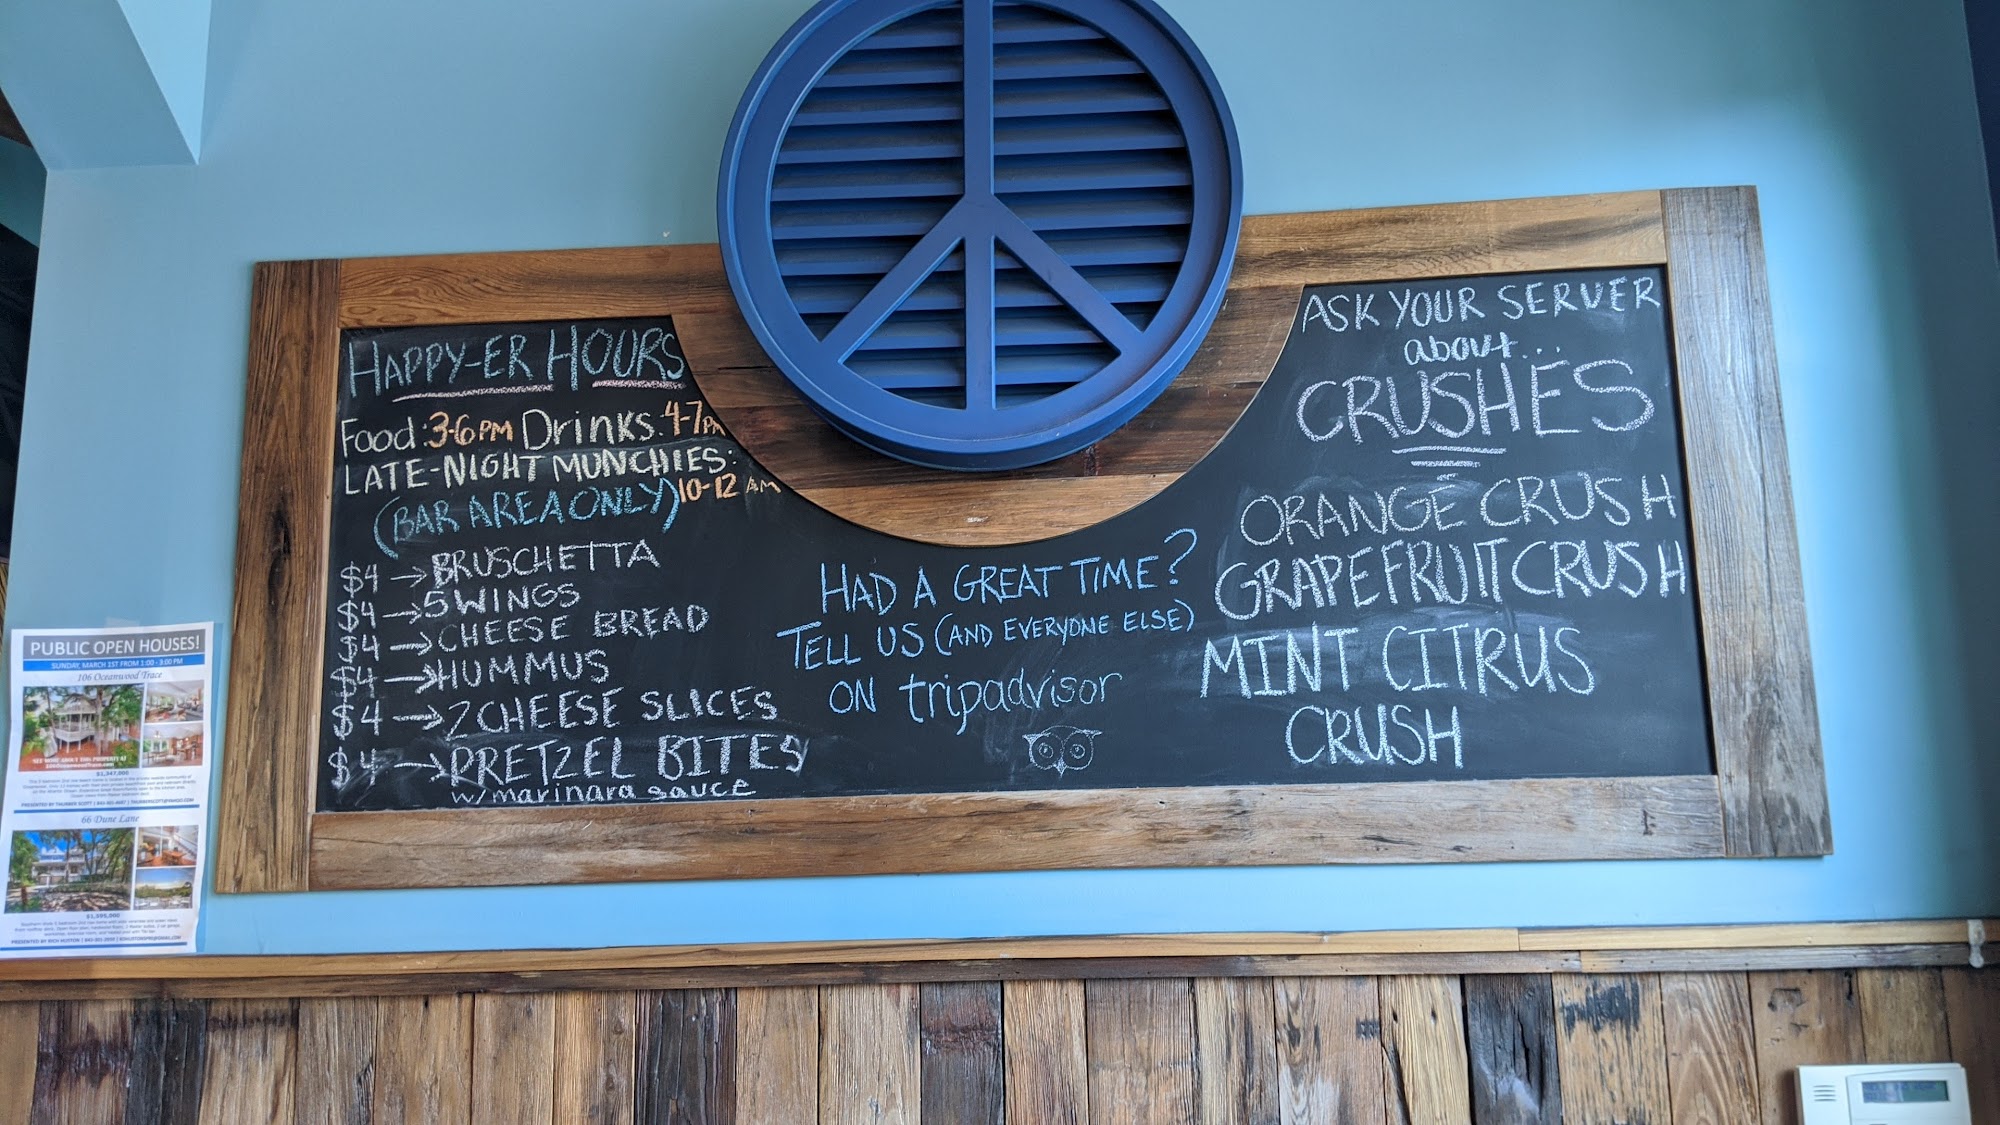 HAPPY-ER HOURS
Food: 3-6 PM Drinks: 4-7 PM
LATE-NIGHT MUNCHIES:
(BAR AREA ONLY) 10-12 AM
$4 → BRUSCHETTA
$4 → 5 WINGS
$4 → CHEESE BREAD
$4 → HUMMUS
$4 → 2 CHEESE SLICES
$4 → PRETZEL BITES
w/ marinara sauce
HAD A GREAT TIME?
TELL US (AND EVERYONE ELSE)
ON tripadvisor
ASK YOUR SERVER
about...
CRUSHES
ORANGE CRUSH
GRAPEFRUIT CRUSH
MINT CITRUS
CRUSH
PUBLIC OPEN HOUSES!
SUNDAY, MARCH 1ST FROM 1:00 - 3:00 PM
106 Oceanwood Trace
$1,347,000
66 Dune Lane
$1,595,000